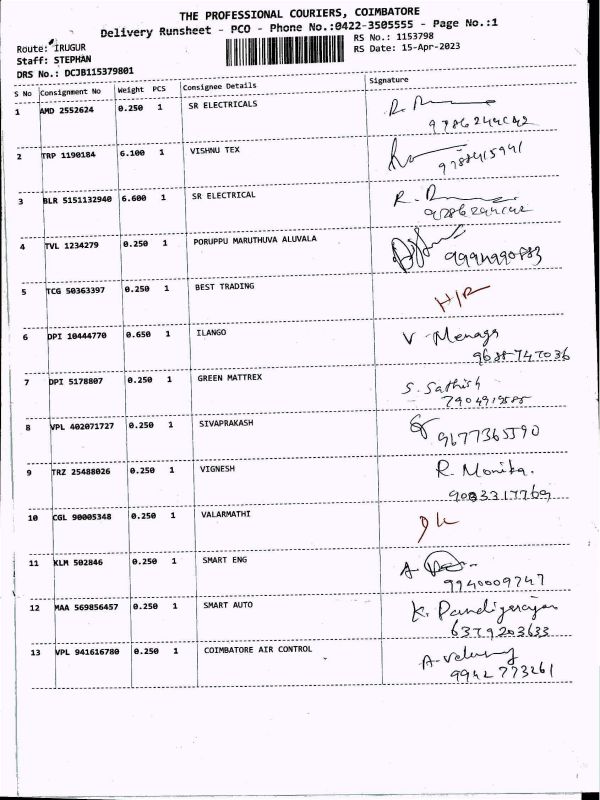 THE PROFESSIONAL COURIERS, COIMBATORE
Delivery Runsheet - PCO - Phone No.:0422-3505555 - Page No.:1
Route: IRUGUR
Staff: STEPHAN
DRS No.: DCJB115379801
RS No.: 1153798
RS Date: 15-Apr-2023
S No Consignment No Weight PCS Consignee Details Signature
1 AMD 2552624 0.250 1 SR ELECTRICALS R.
2 TRP 1190184 6.100 1 VISHNU TEX
3 BLR 5151132940 6.600 1 SR ELECTRICAL R.
4 TVL 1234279 0.250 1 PORUPPU MARUTHUVA ALUVALA
5 TCG 50363397 0.250 1 BEST TRADING H/R
6 DPI 10444770 0.650 1 ILANGO V. Menaga
7 DPI 5178807 0.250 1 GREEN MATTREX S. Sathish
8 VPL 402071727 0.250 1 SIVAPRAKASH
9677365590
9 TRZ 25488026 0.250 1 VIGNESH R. Monika.
9083317769
10 CGL 90005348 0.250 1 VALARMATHI
11 KLM 502846 0.250 1 SMART ENG A.
9940009747
12 MAA 569856457 0.250 1 SMART AUTO K.
6379203633
13 VPL 941616780 0.250 1 COIMBATORE AIR CONTROL
9942773261